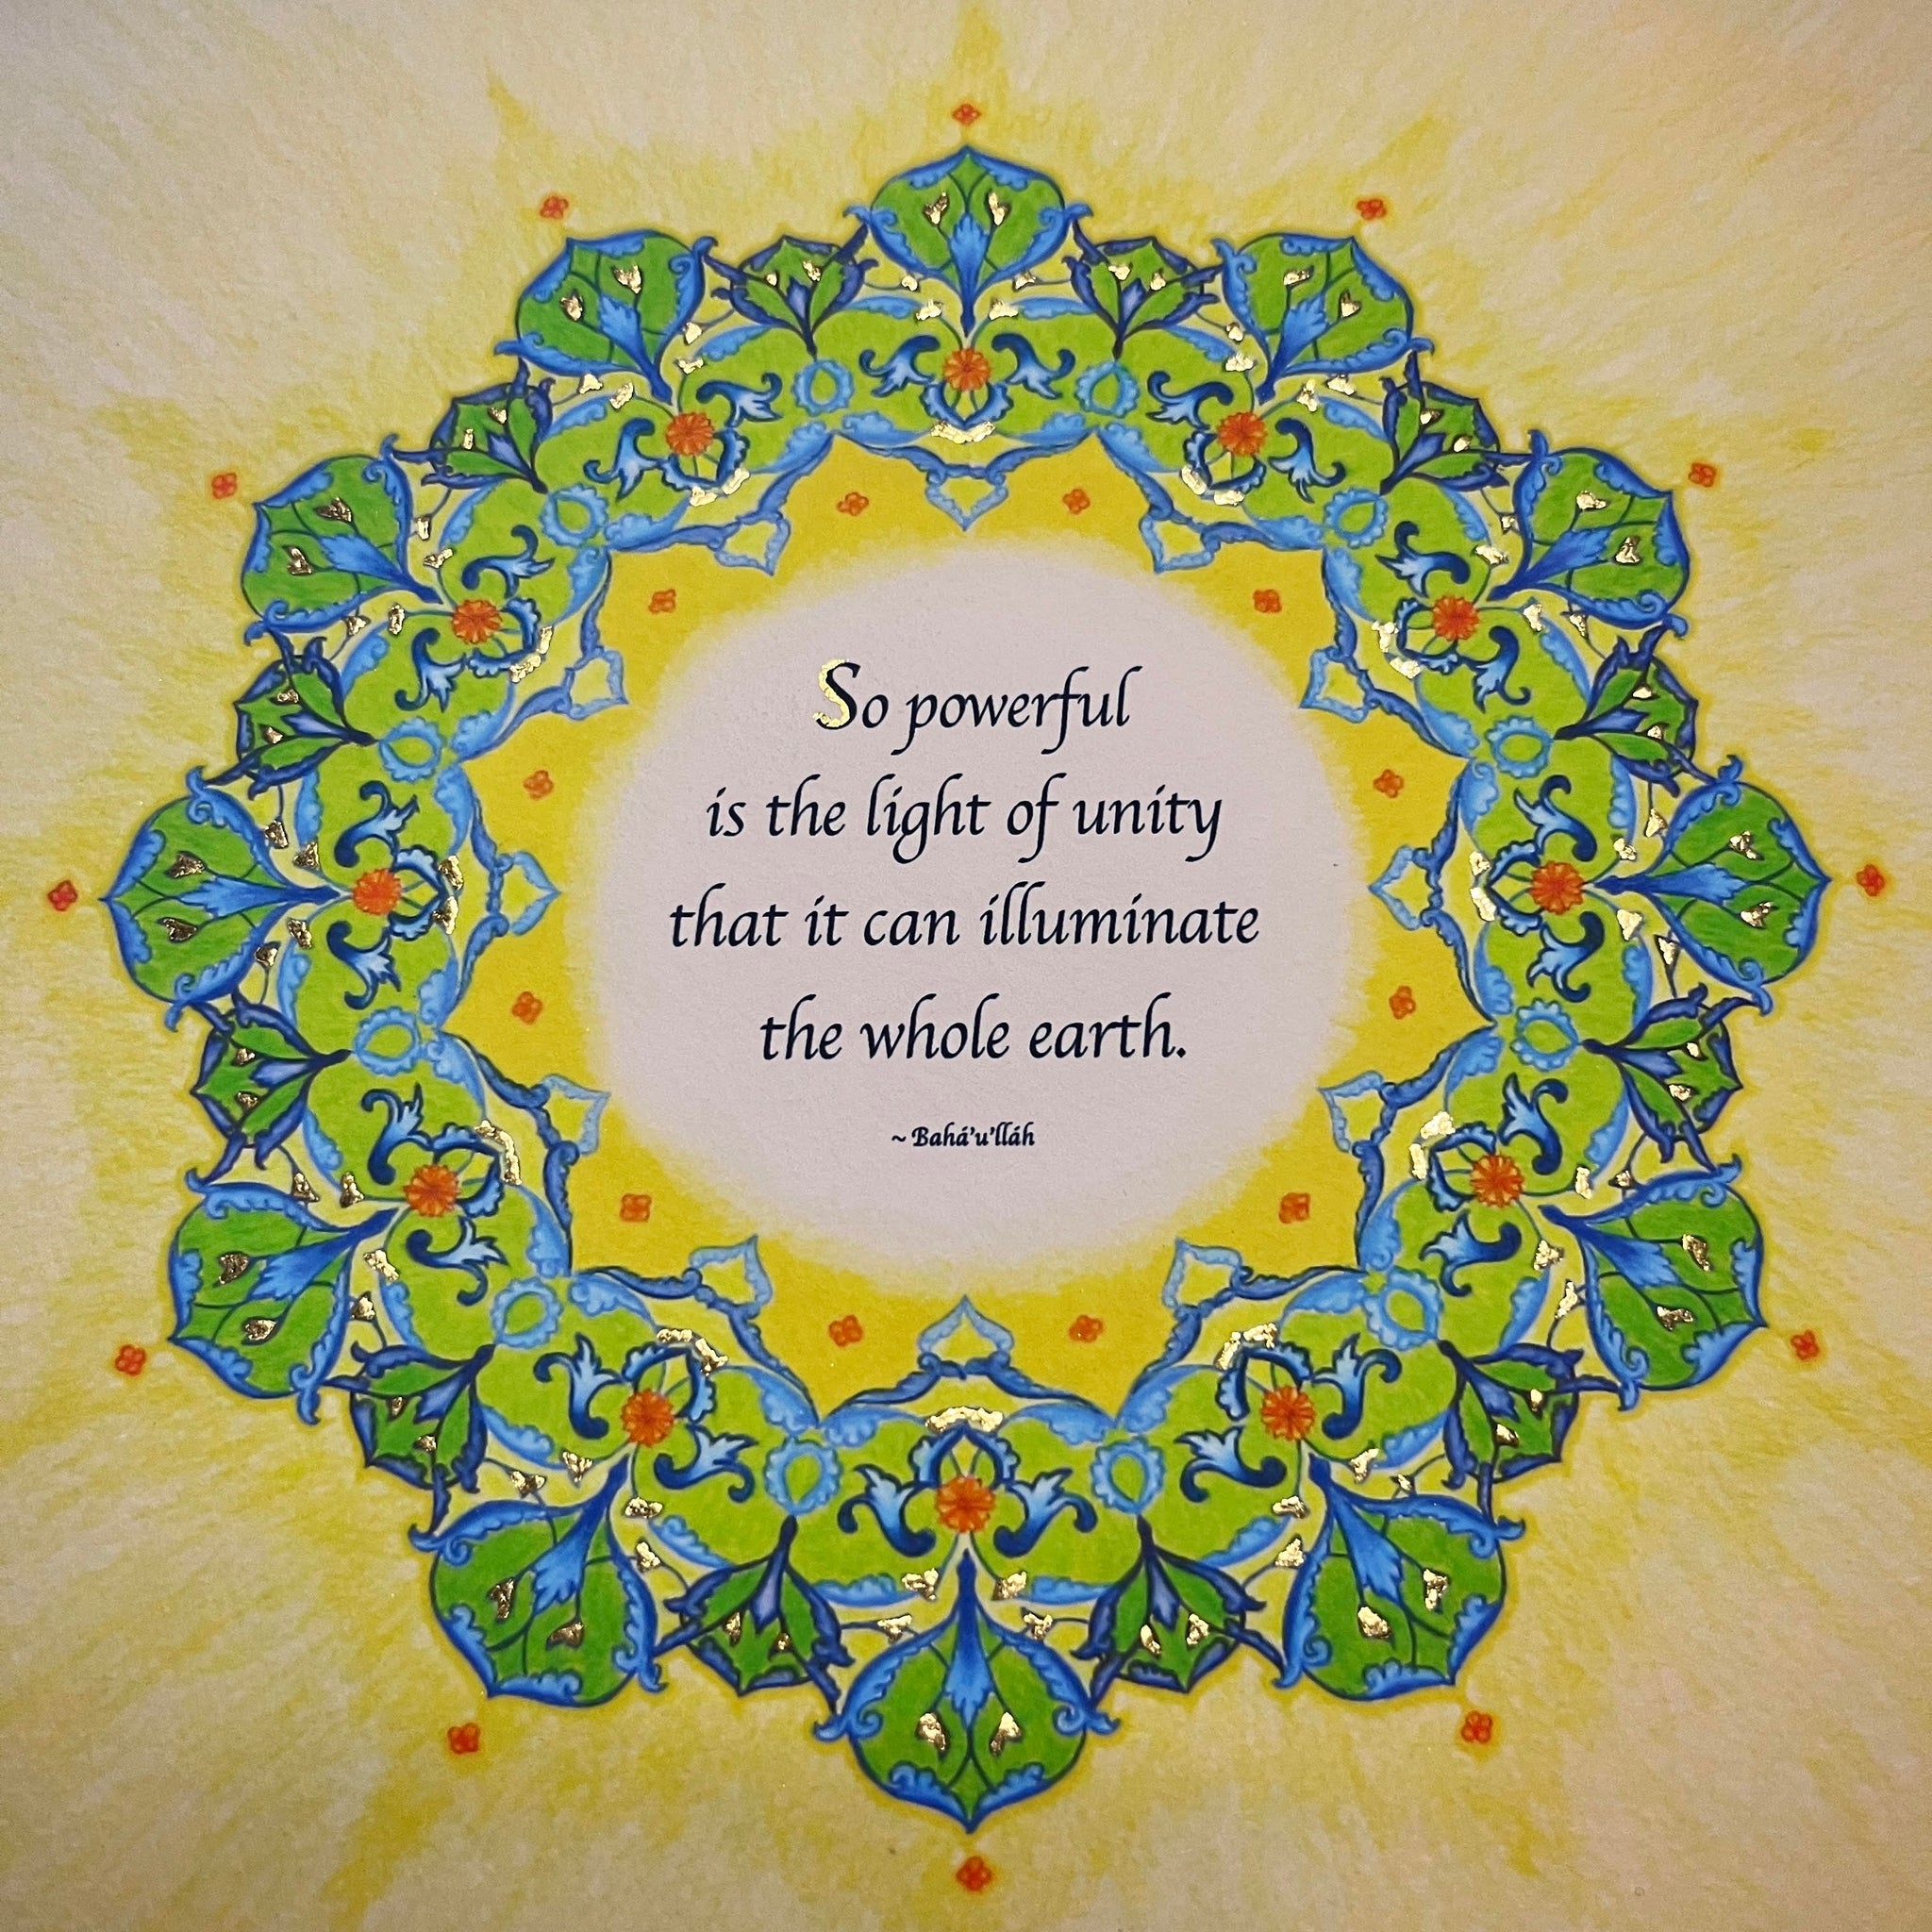 So powerful
is the light of unity
that it can illuminate
the whole earth.
~ Bahá'u'lláh